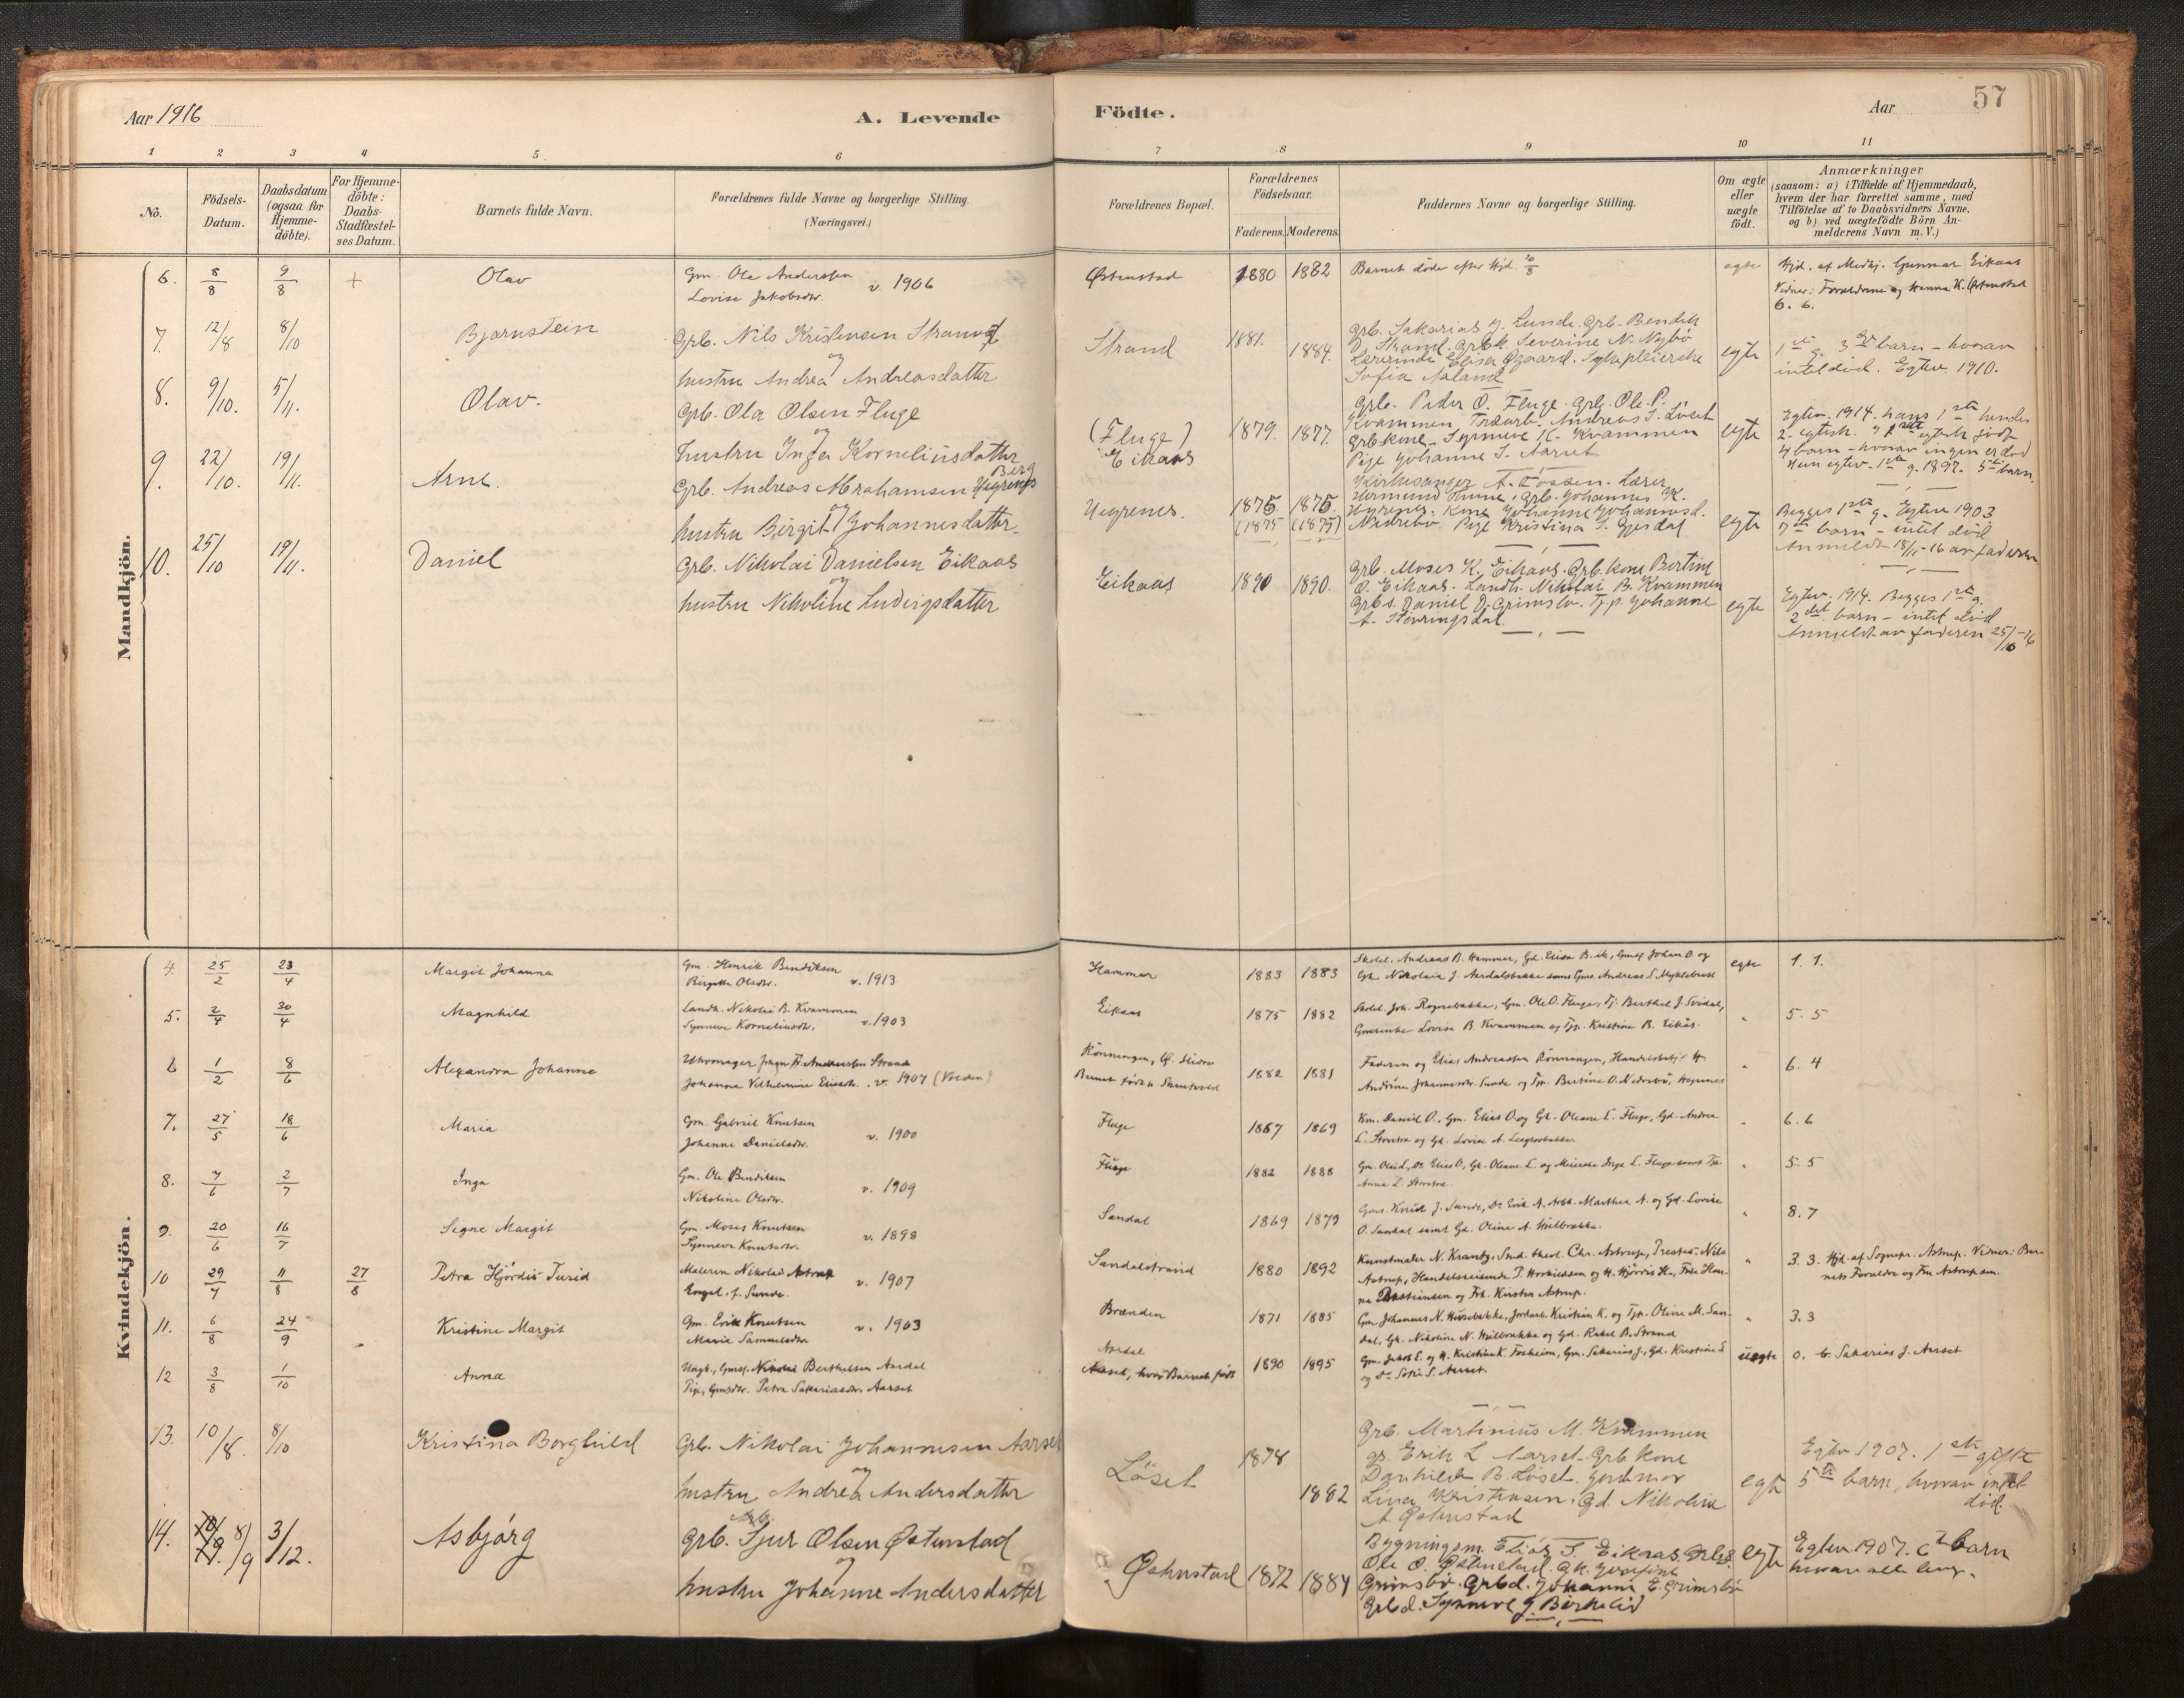 Aar 1916
A. Levende
Födte.
Aar
57
1 2 3 4 5 6 7 8 9 10 11
No.
Födsels-
Datum.
Daabsdatum
(ogsaa for
Hjemme-
döbte).
For Hjemme-
döbte:
Daabs-
Stadfæstel-
ses Datum.
Barnets fulde Navn.
Forældrenes fulde Navne og borgerlige Stilling.
(Næringsvei.)
Forældrenes Bopæl.
Forældrenes
Födselsaar.
Faderens. Moderens.
Faddernes Navne og borgerlige Stilling.
Om ægte
eller
uægte
födt.
Anmærkninger
(saasom: a) i Tilfælde af Hjemmedaab,
hvem der har forrettet samme, med
Tilföielse af to Daabsvidners Navne,
og b) ved uægtefödte Börn An-
melderens Navn m. V.)
Mandkjön.
6. 8/8 9/8 + Olav
Gm. Ole Anderssen
Lovise Jakobsdtr. v. 1906
Østenstad 1880 1882
Barnet døde efter Hjd.
egte
Hjd. af Medhj. Gunnar Eikaas
Vidner: Forældrene og Hanna K. Østenstad
6. 6.
7. 12/8 8/10 Bjarnstein
Grb. Nils Kristensen Strand
og
hustru Andrea Andreasdatter
Strand 1881. 1884.
Grb. Sakarias J. Lunde. Grb. Bendik
D. Strand. Grbk. Severine N. Nybø
Lærerinde Elisa Øgaard. Sykepleierske
Sofia Aaland
egte
1ste g. 3dje barn – hvorav
intet död. Egtev. 1910.
8. 9/10. 5/11. Olav.
Grb. Ola Olsen Fluge
og
hustru Inga Korneliusdatter
(Fluge)
Eikaas
1879. 1877.
Grb. Peder O. Fluge. Grb. Ole P.
Kvammen. Andreas S. Löset
Grbkone Synneve K. Kvammen
Pige Johanne S. Aarset
egte
Egtev. 1914. hans 1ste hendes
2. egtesk.
4 barn – hvorav ingen er död
Hun egtev. 1ste g. 1897. 5te barn.
9. 22/10. 19/11. Arne.
Grb. Andreas Abrahamsen Berg
og
hustru Birgit Johannesdatter
Uegrenes. 1875. 1875.
(1875 (1875)
Kirkesanger A. Fossen. Lærer
Grb. Johannes K.
Kone Johanne Johannesd.
Nedrebø. Pige Kristina S. Gjesdal
egte
Begges 1ste g. Egtev 1903
7de barn – intet död
Anmeldt 18/11-16 av faderen
10. 25/10 19/11. Daniel
Grb. Nikolai Danielsen Eikaas
og
hustru Nikoline Ludvigsdatter
Eikaas 1890 1890.
Grb. Moses K. Eikaas. Grb. kone Bertine
O. Eikaas. Landh. Nikolai B. Kvammen
Grbs. Daniel D. Grimsbø. Tj.p. Johanne
A. Støvringsdal.
egte
Egtev. 1914. Begges 1ste g.
2det barn – intet död
Anmeldt av faderen 25/10-16
Kvindekjön.
4. 25/2 23/4 Margit Johanna
Gm. Henrik Bendiksen
Birgitte Olsdtr. v. 1913
Hammer 1883 1883
Skolel. Andreas B. Hammer, Gd. Elisa B. ib., Gmsf. Johan O. og
Gk. Nikolaia J. Aardalsbakke samt Gms Andreas S. Myklebust
egte 1. 1.
5. 2/4 30/4 Magnhild
Landh. Nikolai B. Kvammen
Synneva Korneliusdtr. v. 1903
Eikaas 1875 1882
Skolel. Joh. Rognebakke, Gm. Ole O. Fluge, Tj. Berthel J. Svidal,
Lovise B. Kvammen og Tjp. Kristine B. Eikås.
" 5. 5
6 1/2 8/6 Alexandra Johanne
Uhrmager Johan Strand
Johanne Vilhelmine Eliasdtr. v. 1907 (Volden)
Rönningen,
Barnet født
1882 1881
Faderen og Elias Andreassen Rönningen,
Andrine Johannesdtr. Sunde og Tjp. Bertine O. Nedrebø,
" 6. 4
7. 27/5 18/6 Maria
Gm. Gabriel Knutsen
Johanne Danielsdtr. v. 1900
Fluge 1867 1869
Km. Daniel O., Gm. Elias O. og Gk. Oleane L. Fluge, Gd. Andrea
L. Storetræ og Gd. Lovise A.
" 6. 6
8. 7/6 2/7 Inga
Gm. Ole Bendiksen
Nikoline Olsdtr. v. 1909
Fluge 1882 1888
Gm. Ole L., Do Elias O., Gk. Oleane L. og Meierske Inga L. Fluge samt Tjp.
Anna L. Storetræ.
" 5. 5
9. 20/6 16/7 Signe Margit
Gm. Moses Knutsen
Synneva Knutsdtr. v. 1898
Sandal 1869 1879
Gms. Knut J. Sunde, Do Erik A. Marthea A. og Gd. Lovise
O. Sandal samt Gd. Oline A. Hiilbrække.
" 8. 7
10 29/4 11/8 27/8 Petra Hjördis Turid
Maleren Nikolai Astrup
Engel f. Sunde. v. 1907
Sandalstrand 1880 1892
Kunstmaler N. Krantz, Stud. theol. Chr. Astrup, Prestes. Nils
Astrup, Handelsreisende
og Frk. Kirsten Astrup.
" 3. 3. Hjd. af Sognepr. Astrup. Vidner: Bar-
nets Forældre og Fru Astrup sen.
11. 6/8 24/9 Kristine Margit
Gm. Erik Knutsen
Marie Samuelsdtr. v. 1903
Brænden 1871 1885
Gm. Johannes N. Husebakke, Jordarb. Kristian K. og Tjp. Oline M. San-
dal, Gk. Nikoline N. Hiilbrække og Gd. Rakel B. Strand
" 3. 3
12 3/8 1/10 Anna
Ungk., Gmsf. Nikolai Berthelsen Aardal
Pige, Gmsdtr. Petra Sakariasdtr. Aarset
Aardal
Aarset, hvor Barnet født
1890 1895
Gm. Jakob E. og H. Kristine K. Förheim, Gm. Sakarias J., Gd. Kristine S.
og Do Sofie S. Aarset.
uegte 0. b. Sakarias J. Aarset
13. 10/8. 8/10 Kristina Borghild
Grb. Nikolai Johannesen Aarset
og
hustru Andrea Andersdatter
Löset 1878 1882
Grb. Martinius M. Kvammen
gr. Erik L. Aarset. Grb kone
Danhild B. Löset. Jordmor
Lina Kristensen. Gd. Nikoline
A. Østenstad
egte
Egtev 1907. 1ste gifte
5te barn, hvorav intet
död.
14. 8/9 3/12. Asbjörg
Grb. Sjur Olsen Østenstad
og
hustru Johanne Andersdatter
Østenstad 1872 1884
Bygningsm. Elias T. Eikaas. Grbs.
Ole O. Østenstad. Gk. Josefine
Grimsbø. Grbd. Johanne E. Grimsbø
Grbd. Synneve J. Birkelid
egte
Egtev 1907. barn
hvorav alle lever.